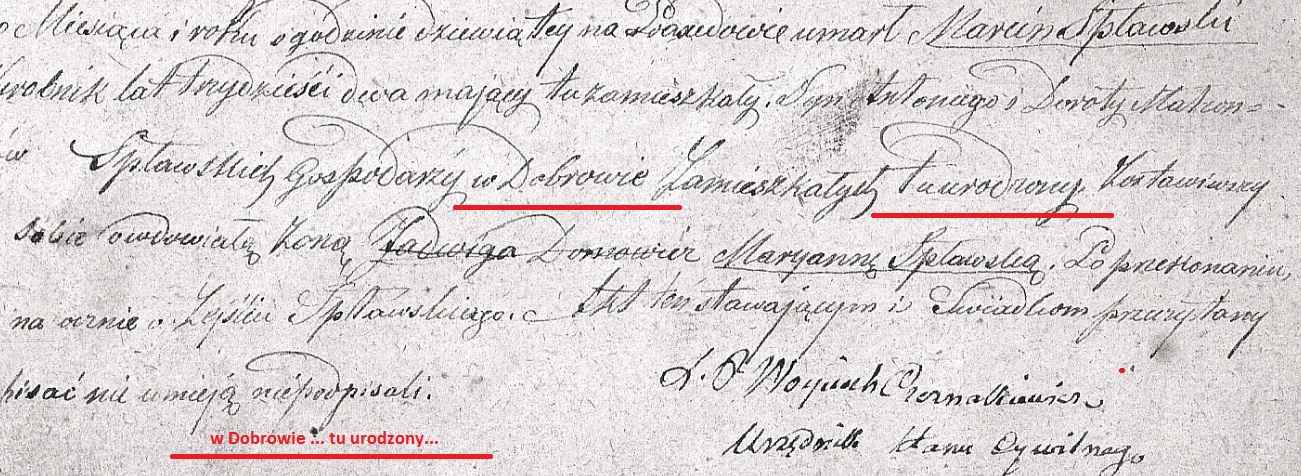 Miesiąca i roku o godzinie dziewiątey na umarł Marcin Spławski
lat trzydzieści dwa mający tu zamieszkały. Syn Antoniego i Doroty Małżon=
ów Spławskich Gospodarzy w Dobrowie Zamieszkałych tu urodzony. Zostawiwszy
sobie owdowiałą Żonę Jadwiga Maryannę Spławską. Po przekonaniu
na ocznie o Zejściu Spławskiego. Akt ten stawającym i Świadkom przeczytany
pisać nie umieją niepodpisali.
X. P. Woyciech
Urzędnik Stanu Cywilnego
w Dobrowie ... tu urodzony...